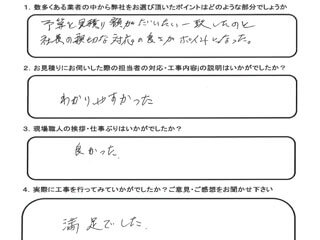 1. 数多くある業者の中から弊社をお選び頂いたポイントはどのような部分でしょうか
予算と見積り額がだいたい一致したのと
社長の親切な対応の良さがポイントになった。
2. お見積りにお伺いした際の担当者の対応・工事内容の説明はいかがでしたか?
わかりやすかった
3. 現場職人の挨拶・仕事ぶりはいかがでしたか?
良かった.
4. 実際に工事を行ってみていかがでしたか?ご意見・ご感想をお聞かせ下さい
満足でした.